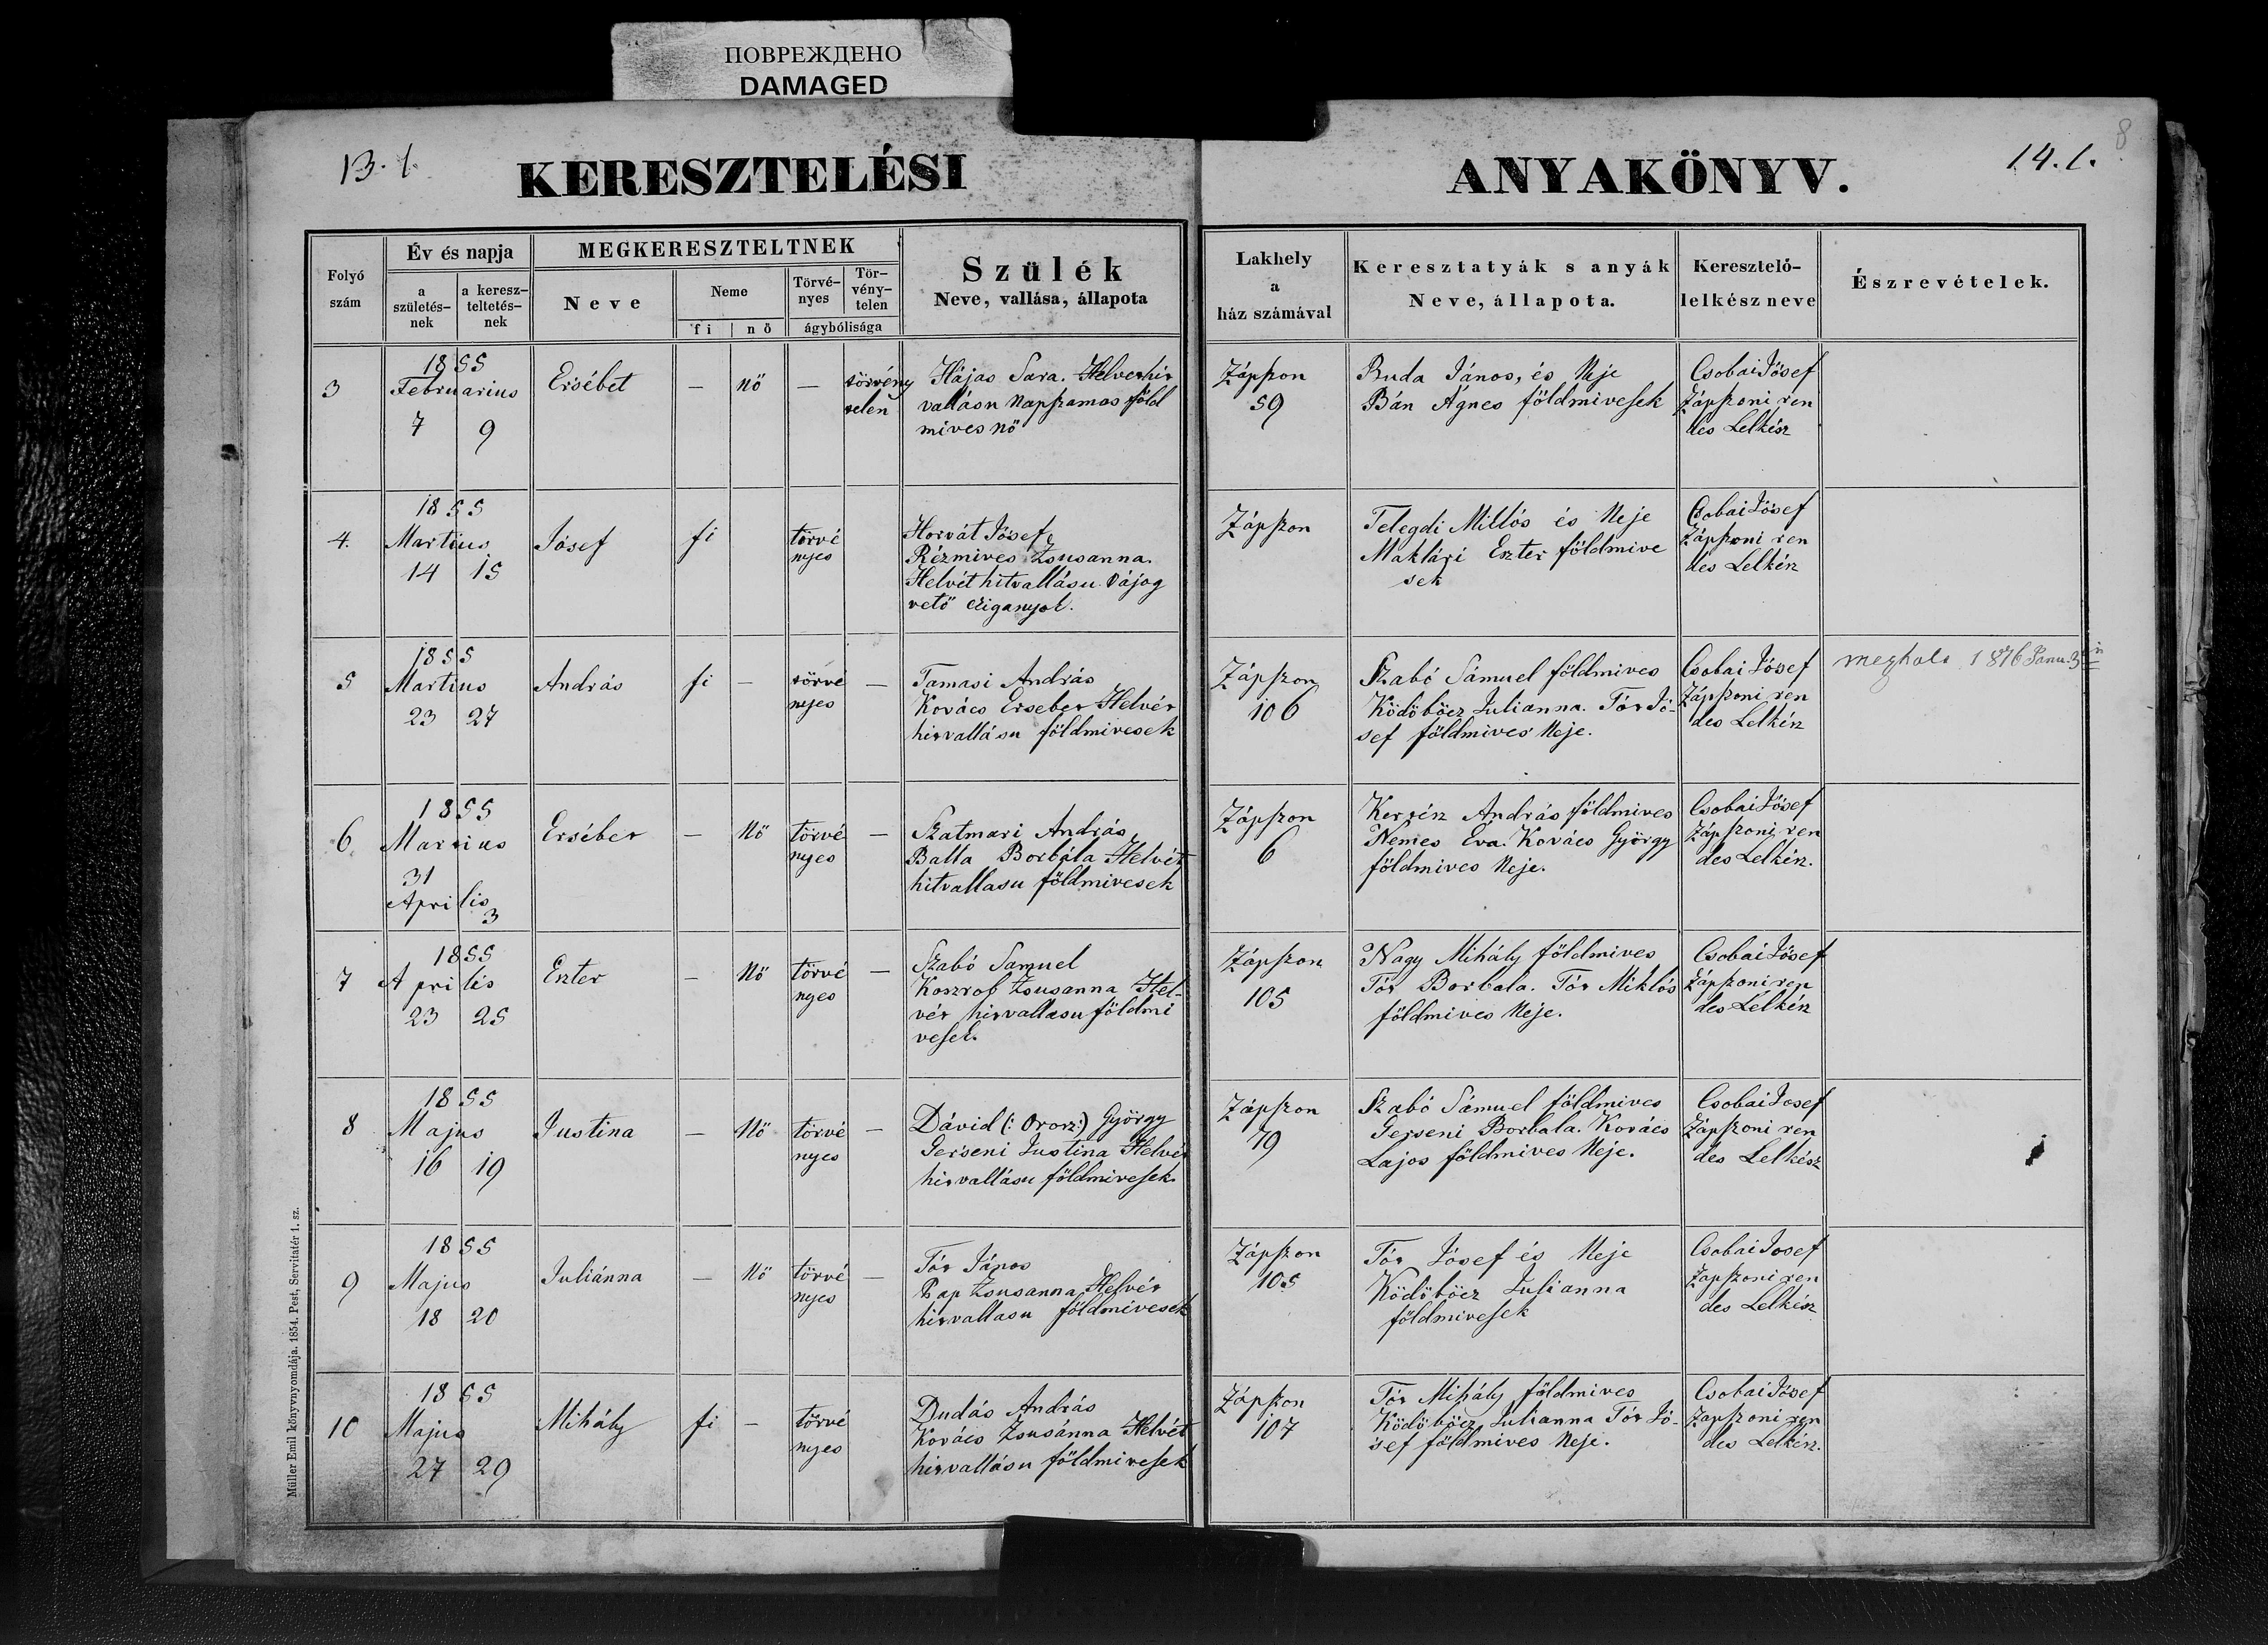 ПОВРЕЖДЕНО
DAMAGED
13. l.
KERESZTELÉSI
ANYAKÖNYV.
14. l.
8
Folyó
szám
Év és napja
a
születés-
nek
a keresz-
teltetés-
nek
MEGKERESZTELTNEK
Neve
Neme
fi | nő
Törvé-
nyes
Tör-
vény-
telen
ágybólisága
Szülék
Neve, vallása, állapota
Lakhely
a
ház számával
Keresztatyák s anyák
Neve, állapota.
Keresztelő-
lelkész neve
Észrevételek.
3
1855
Februarius
7 9
Ersébet
— nö — törvény
telen
Hájas Sara. Helvet hit
vallásu Napszamos föld
mives nö
Zápszon
59
Buda János, és Neje
Bán Ágnes földmivesek
Csobai Jósef
Zápszoni ren
des Lelkész
4.
1855
Martius
14 15
Jósef
fi
törvé
nyes
Horvát Jósef,
Rézmives Zsusanna.
Helvét hitvallásu Vájog
vető cziganyok.
Zápszon
Telegdi Miklós és Neje
Maklári Eszter földmive
sek
Csobai Jósef
Zápszoni ren
des Lelkész
5
1855
Martius
23 27
András
fi —
törvé
nyes
—
Tamasi András
Kovács Ersebet Helvét
hitvallásu földmivesek
Zápszon
106
Szabó Sámuel földmives
Ködöböcz Julianna. Tót Jó-
sef földmives Neje.
Csobai Jósef
Zápszoni ren
des Lelkész
meghalt 1876 Janu. 3án
6
1855
Martius
31
Aprilis
3
Ersébet
— Nö
törvé
nyes
—
Szatmari András,
Balla Borbála Helvét
hitvallasu földmivesek
Zápszon
6
Kertész András földmives
Nemes Eva. Kovács György
földmives Neje.
Csobai Jósef
Zápszoni ren
des Lelkész.
7
1855
Aprilis
23 25
Eszter
— Nö
törvé
nyes
—
Szabó Samuel
Koszrob Zsusanna Hel-
vét hitvallasu földmi
vesek.
Zápszon
105
Nagy Mihály földmives
Tót Borbala. Tót Miklós
földmives Neje.
Csobai Jósef
Zápszoni ren
des Lelkész
8
1855
Majus
16 19
Justina
— Nö
törvé
nyes
—
Dávid (: Orosz :) György
Gerseni Justina Helvét
hitvallásu földmivesek.
Zápszon
79
Szabó Sámuel földmives
Gerseni Borbala. Kovács
Lajos földmives Neje.
Csobai Josef
Zápszoni ren
des Lelkész
9
1855
Majus
18 20
Juliánna
— Nö
törvé
nyes
—
Tót János
Pap Zsusanna Helvét
hitvallasu földmivesek
Zápszon
105
Tót Jósef és Neje
Ködöböcz Julianna
földmivesek
Csobai Josef
Zapszoni ren
des Lelkész
10
1855
Majus
27 29
Mihály
fi —
törvé
nyes
Dudás András
Kovács Zsusánna Helvét
hitvallásu földmivesek
Zápszon
107
Tót Mihály földmives
Ködöböcz Julianna Tót Jó-
sef földmives Neje.
Csobai Jósef
Zapszoni ren
des Lelkész.
Müller Emil könyvnyomdája. 1854. Pest, Servitatér 1. sz.